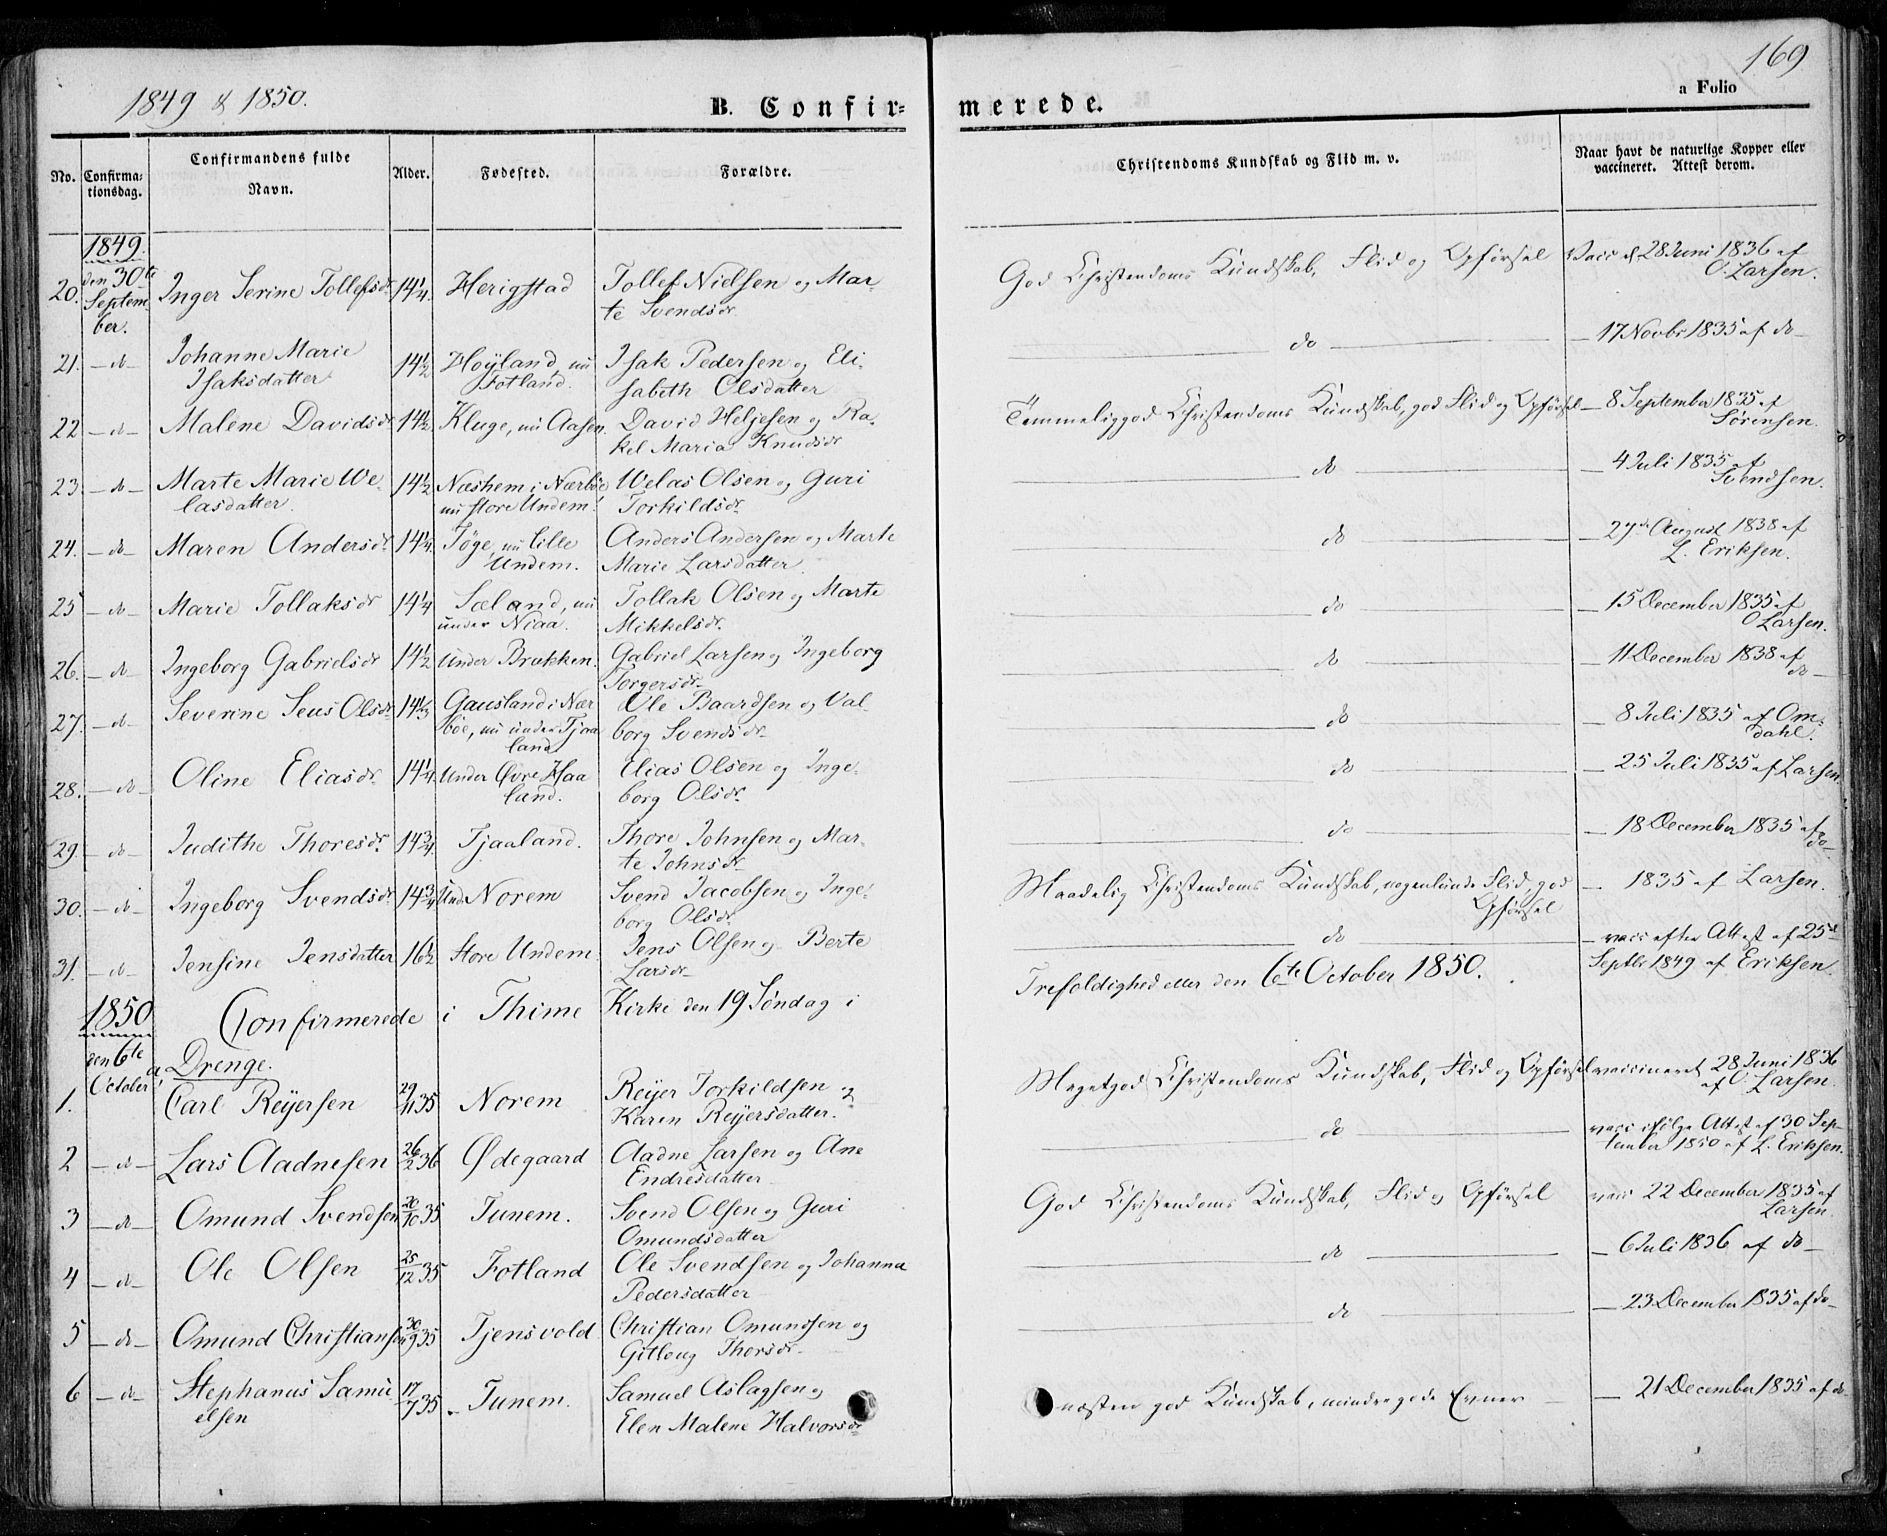 169
1849 & 1850.
B. Confir-
merede.
a Folio
No.
Confirma-
tionsdag.
Confirmandens fulde
Navn.
Alder.
Fødested.
Forældre.
Christendoms Kundskab og Flid m. v.
Naar havt de naturlige Kopper eller
vaccineret. Attest derom.
1849.
20. den 30te Septem- ber. Inger Serine Tollefsdr 14 1/4. Herigstad Tollef Nielsen og Mar- te Svendsdr God Christendoms Kundskab, Flid og Opførsel Vacc d. 28 Juni 1836 af O. Larsen.
21. – do – Johanne Marie Isaksdatter 14 1/2 Høyland, nu Fotland. Isak Pedersen og Eli- sabeth Olsdatter do – 17 Novbr 1835 af do –
22 – do – Malene Davidsdr 14 1/2 Kluge, nu Aasen. David Heljesen og Ra- kel Maria Knudsdr Temmelig god Christendoms Kundskab, god Flid og Opførsel – 8 September 1835 af Sørensen.
23. – do – Marte Marie We- lasdatter. 14 1/2 Næshem i Nærbøe nu store Undem. Welas Olsen og Guri Torkildsdr. do – 4 Juli 1835 af Svendsen.
24. – do – Maren Andersdr. 14 1/4. Tøge, nu lille Undem. Anders Andersen og Marte Marie Larsdatter. do – 27de August 1838 af L. Eriksen.
25 – do – Marie Tollaksdr 14 1/4 Sæland, nu under Niaa. Tollak Olsen og Marte Mikkelsdr. do – 15 December 1835 af O Larsen.
26. – do – Ingeborg Gabrielsdr 14 1/2. Under Brækken. Gabriel Larsen og Ingeborg Torgersdr. do – 11 December 1838 af do –
27. – do – Severine Seus Olsdr. 14 1/3 Gausland i Nær bøe, nu under Tjaa land. Ole Baardsen og Val- borg Svendsdr. do – 8 Juli 1835 af Om- dahl.
28. – do – Oline Eliasdr. 14 1/4. Under Øvre Haa land. Elias Olsen og Inge- borg Olsdr. do – 25 Juli 1835 af Larsen.
29. – do – Judithe Thoresdr. 14 3/4. Tjaaland. Thore Johnsen og Mar- te Johnsdr. do – 18 December 1835 af do –
30. – do – Ingeborg Svendsdr. 14 3/4 Und. Norem Svend Jacobsen og Inge- borg Olsdr. Maadelig Christendoms Kundskab, nogenlunde Flid, god Opførsel – 1835 af Larsen.
31. – do – Jensine Jensdatter 16 1/2 Store Undem Jens Olsen og Berte Larsdr. do – vacc efter Attest af 25de Septbr 1849 af Eriksen.
1850 Confirmerede i Thime Kirke den 19 Søndag i Trefoldighed eller den 6te October 1850.
den 6te October a Drenge.
1. Carl Reyersen 29/11 35 Norem Reyer Torkildsen og Karen Reyersdatter. Meget god Christendoms Kundskab, Flid og Opførsel vaccineret 28 Juni 1836 af O Larsen.
2 – do – Lars Aadnesen 26/2 36 Ødegaard Aadne Larsen og Ane Endresdatter do vacc ifølge Attest af 30 Sep- tember 1850 af L. Eriksen.
3 – do – Omund Svendsen 20/10 35 Tunem. Svend Olsen og Guri Omundsdatter God Christendoms Kundskab, Flid og Opførsel vacc 22 December 1835 af Larsen.
4 – do – Ole Olsen 25/12 35 Fotland Ole Svendsen og Johanna Pedersdatter do – 6 Juli 1836 af do –
5 – do – Omund Christiansen 30/9 35 Tjensvold Christian Omundsen og Gitloug Thorsdr. do – 23 December 1835 af do –
6 – do – Stephanus Samu elsen 17/7 35 – Tunem. Samuel Aslagsen og Elen Malene Halvorsdr næsten god Kundskab, mindre gode Evner – 21 December 1835 af do